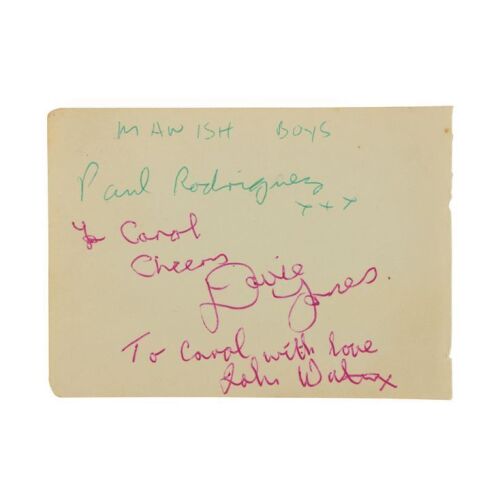 MANISH BOYS
Paul Rodriguez
xxx
To Carol
Cheers
Davie
Jones.
To Carol with love
John Watson x